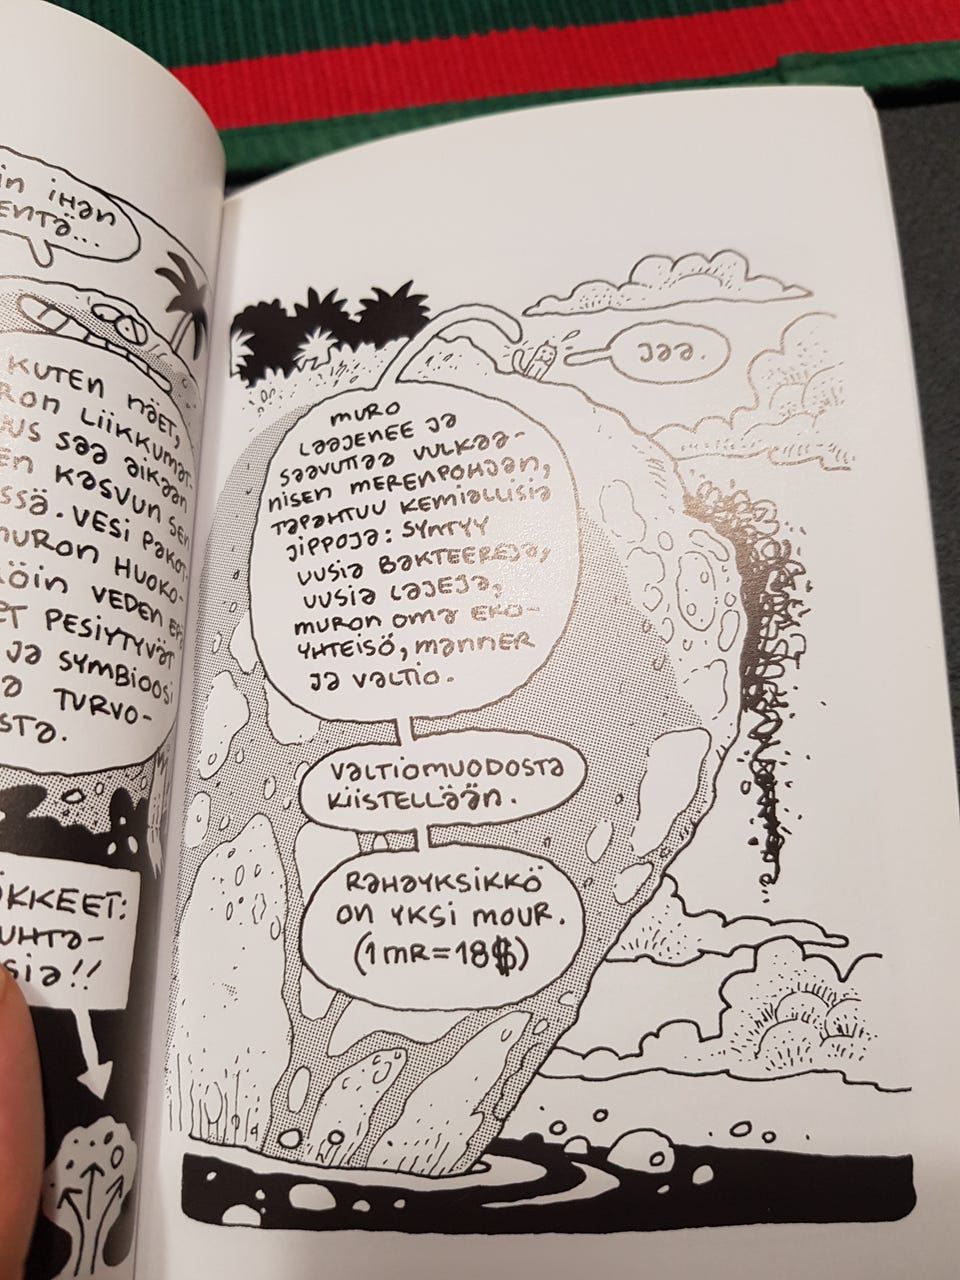 in ihan
entä...
Kuten näet,
ron liikkumat-
us saa aikaan
en kasvun sen
ssä. Vesi pakot-
muron huoko-
öin veden epä
et pesiytyvät
ja symbioosi
a turvo-
sta.
ökkeet:
uhta-
sia!!
Jaa.
Muro
laajenee ja
saavuttaa vulkaa-
nisen merenpohjan,
tapahtuu kemiallisia
jippoja: syntyy
uusia bakteereja,
uusia lajeja,
muron oma eko-
yhteisö, manner
ja valtio.
Valtiomuodosta
kiistellään.
Rahayksikkö
on yksi mour.
(1 mr = 18$)